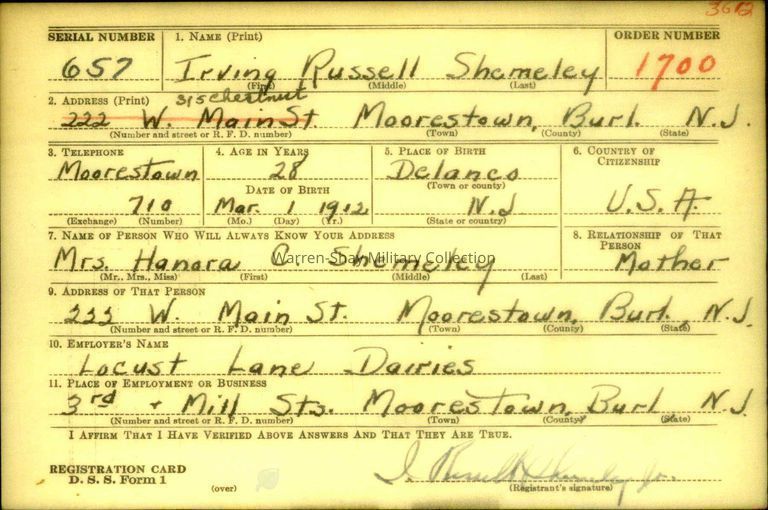 3612
SERIAL NUMBER 1. NAME (Print) ORDER NUMBER
657 Irving Russell Shemeley 1700
(First) (Middle) (Last)
315 Chestnut
2. ADDRESS (Print)
222 W. Main St Moorestown, Burl. N.J.
(Number and street or R. F. D. number) (Town) (County) (State)
3. TELEPHONE 4. AGE IN YEARS 5. PLACE OF BIRTH 6. COUNTRY OF CITIZENSHIP
Moorestown 28 Delanco
(Town or county)
DATE OF BIRTH
710 Mar. 1 1912 N.J U.S.A.
(Exchange) (Number) (Mo.) (Day) (Yr.) (State or country)
7. NAME OF PERSON WHO WILL ALWAYS KNOW YOUR ADDRESS 8. RELATIONSHIP OF THAT PERSON
Mrs. Hanora C. Shemeley Mother
Warren-Shay Military Collection
(Mr., Mrs., Miss) (First) (Middle) (Last)
9. ADDRESS OF THAT PERSON
222 W. Main St. Moorestown, Burl, N.J.
(Number and street or R. F. D. number) (Town) (County) (State)
10. EMPLOYER'S NAME
Locust Lane Dairies
11. PLACE OF EMPLOYMENT OR BUSINESS
3rd + Mill Sts. Moorestown, Burl. N.J.
(Number and street or R. F. D. number) (Town) (County) (State)
I AFFIRM THAT I HAVE VERIFIED ABOVE ANSWERS AND THAT THEY ARE TRUE.
REGISTRATION CARD
D. S. S. Form 1
(over)
I. Russell Shemeley Jr.
(Registrant's signature)